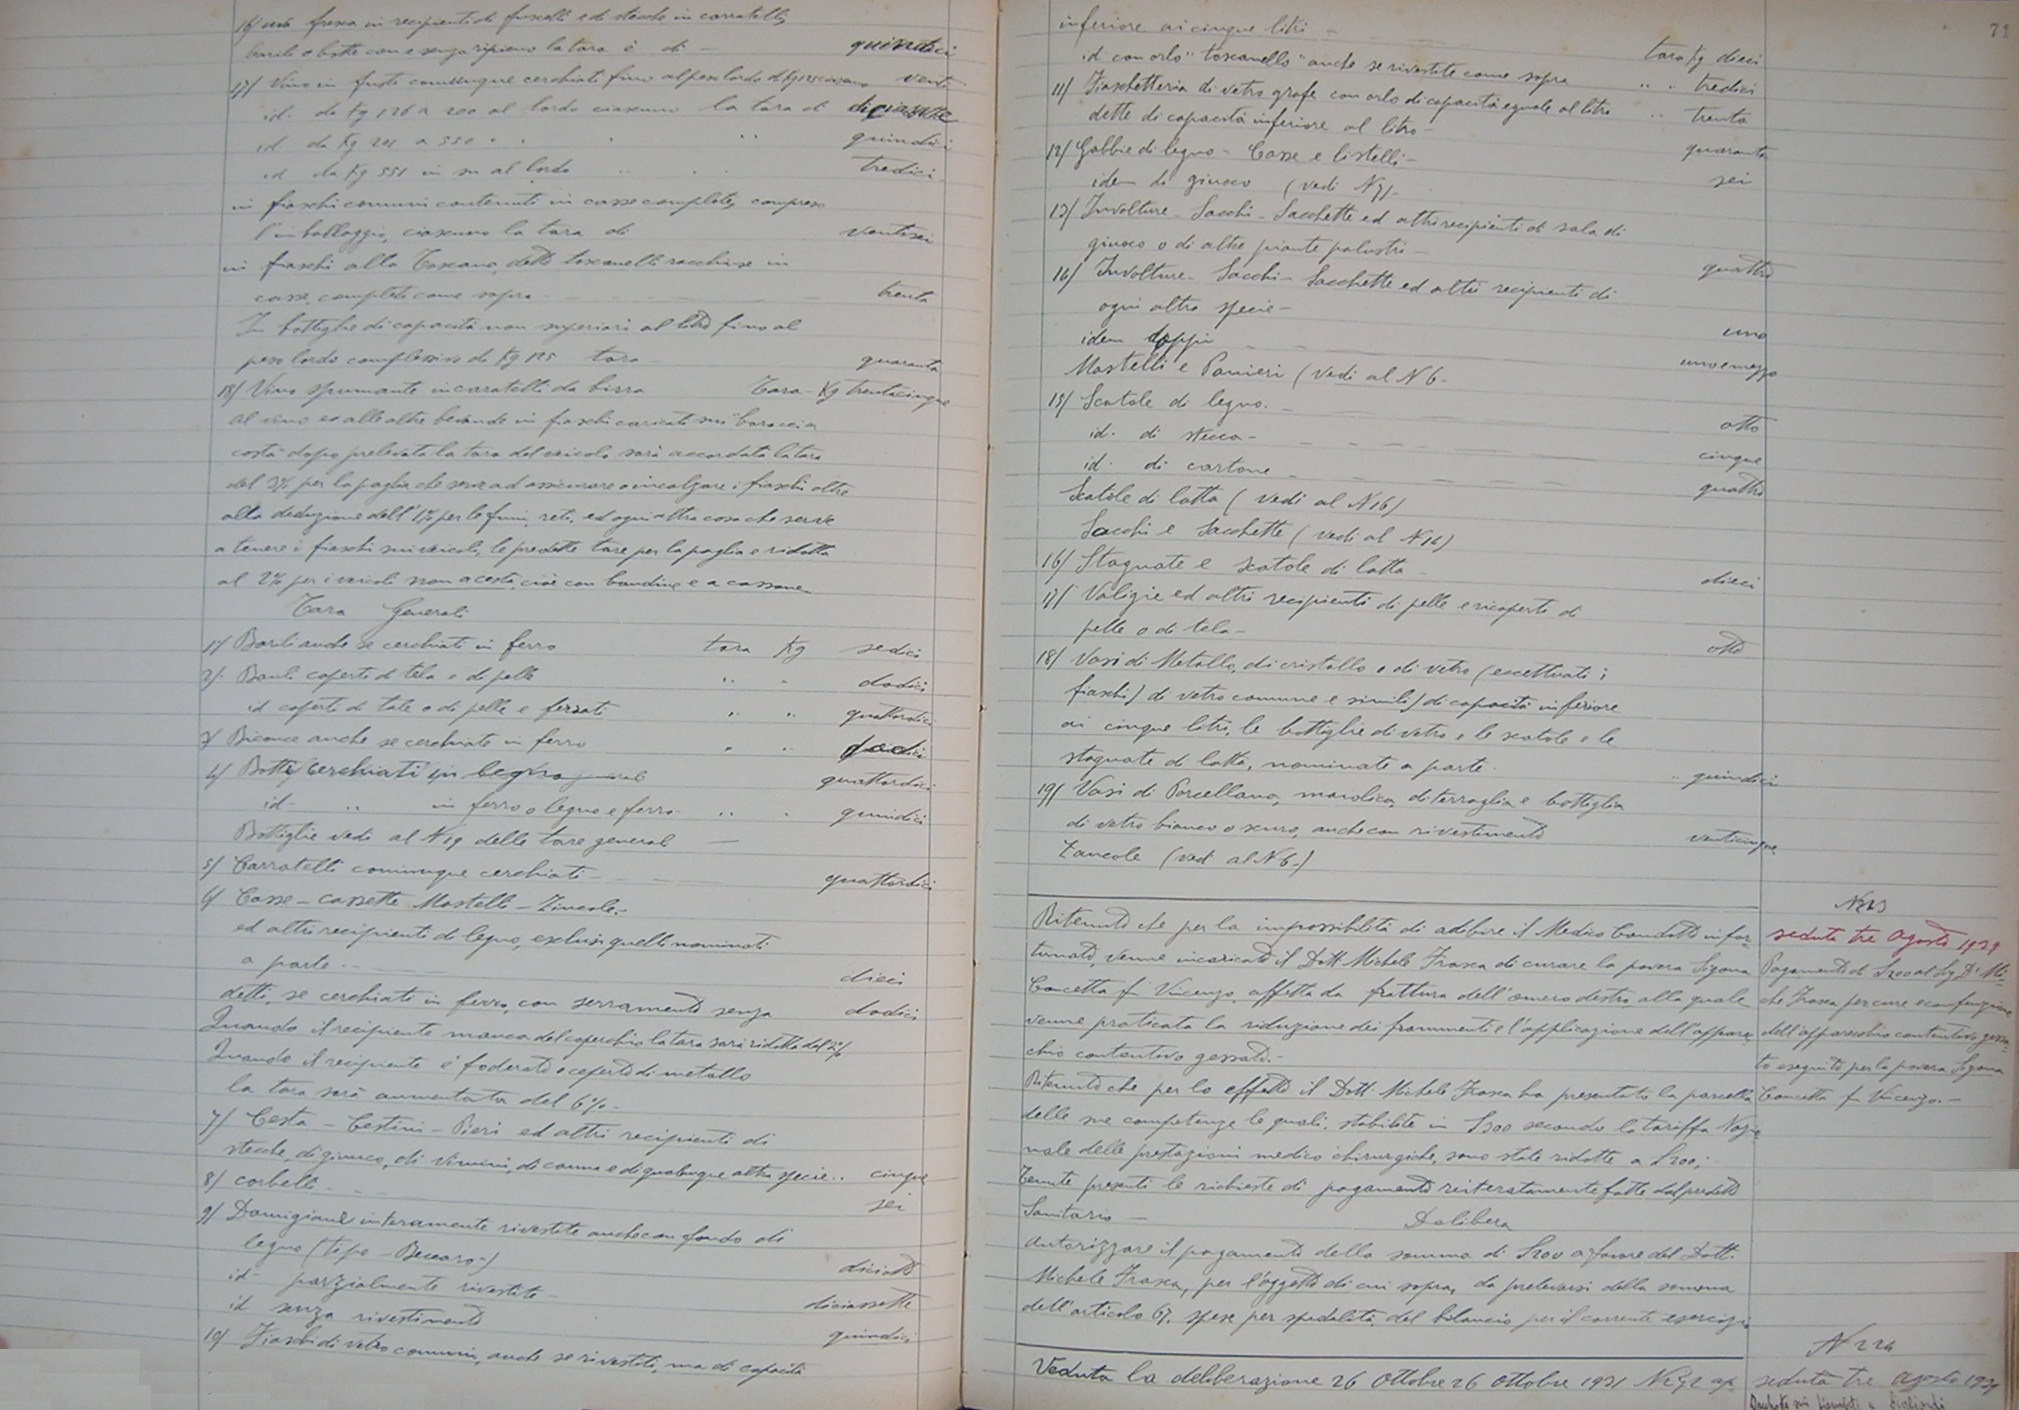 16/ uva fresca in recipienti di fuscelli ed stecche in carratelli,
barile o botte con e senza ripieno la tara è di — quindici
17/ Vino in fusti comunque cerchiati fino al peso lordo di Kg 125 ciascuno venti
id. da Kg 126 a 200 al lordo ciascuno la tara di diciassette
id da Kg 201 a 550 " " " quindici
id da Kg 551 in su al lordo " " tredici
in fiaschi comuni contenuti in casse complete, compreso
l'imballaggio, ciascuno la tara di ventisei
in fiaschi alla Toscana, detti toscanelli racchiuse in
casse, complete come sopra trenta
In bottiglie di capacità non superiori al litro fino al
peso lordo complessivo di Kg 125 tara quaranta
18/ Vino spumante in caratelli da birra Tara - Kg trentacinque
al vino ed alle altre bevande in fiaschi caricati sui baroccia
costà dopo prelevata la tara del veicolo sarà accordata la tara
del 3% per la paglia che serve ad assicurare o incalzare i fiaschi oltre
alla deduzione dell'1% per le funi, reti, ed ogni altra cosa che serve
a tenere i fiaschi sui veicoli, le predette tare per la paglia e ridotta
al 2% per i veicoli non a cesta, cioè con bandine e a cassone
Tara Generali
1/ Barili anche se cerchiati in ferro tara Kg sedici
2/. Bauli coperti di tela e di pelle " " dodici
id coperti di tele o di pelle e ferrati " " quattordici
3/ Bigonce anche se cerchiate in ferro " " dodici
4/ Botti cerchiati in legno quattordici
id- " in ferro o legno e ferro " " quindici
Bottiglie vedi al N 19 delle tare generali —
5/ Carratelli comunque cerchiati - quattordici
6/ Casse - cassette Mastelli - Zincole.-
ed altri recipienti di legno, esclusi quelli nominati
a parte.- dieci
detti, se cerchiati in ferro, con serramenti senza dodici
Quando il recipiente manca del coperchio la tara sarà ridotta del 2%
Quando il recipiente è foderato o coperto di metallo
la tara sarà aumentata del 6%.-
7/ Cesta - Cestini - Pieri ed altri recipienti di
stecche, di giunco, di vimini, di canna e di qualunque altra specie.. cinque
8/ corbelli - sei
9/ Damigiane interamente rivestite anche con fondo di
legno (tipo - Beccaro-) diciotto
id- parzialmente rivestite- diciassette
id senza rivestimento quindici
10/ Fiaschi di vetro comuni, anche se rivestiti, ma di capacità
71
inferiore ai cinque litri - tara Kg dieci
id con orlo "toscanello" anche se rivestite come sopra " " tredici
11/ Fiaschetteria di vetro grafe con orlo di capacità eguale al litro " trenta
dette di capacità inferiore al litro- quaranta
12/ Gabbie di legno - Casse e listelli- sei
idem di giunco (vedi N 7)-
13/ Involture - Sacchi - Sacchette ed altri recipienti di sala di
giunco o di altre piante palustri- quattro
14/ Involture - Sacchi - Sacchette ed altri recipienti di
ogni altra specie- uno
idem doppi unoemezzo
Mastelli e Panieri (vedi al N 6-
15/ Scatole di legno. - otto
id- di stecca- cinque
id- di cartone - quattro
Scatole di latta (vedi al N 16)
Sacchi e Sacchette (vedi al N 14)
16/ Stagnate e scatole di latta - dieci
17/ Valigie ed altri recipienti di pelle e ricoperte di
pelle o di tela- otto
18/ Vasi di Metallo, di cristallo o di vetro (eccettuati i
fiaschi) di vetro comune e simili) di capacità inferiore
ai cinque litri, le bottiglie di vetro e le scatole e le
stagnate di latta, nominate a parte. " quindici
19/ Vasi di Porcellana, maiolica, di terraglia e bottiglia
di vetro bianco o scuro, anche con rivestimento venticinque
Zancole (vedi al N 6-)
N 223
seduta tre agosto 1929
Pagamento di £200 al Sig. Dr Mi-
che Frasca per cure e confezione
dell'apparecchio contentivo gessa=
to eseguito per la povera Sigona
Concetta fu Vincenzo.-
Ritenuto che per la impossibilità di adibire il Medico Condotto infor=
tunato, venne incaricato il Dott. Michele Frasca di curare la povera Sigona
Concetta fu Vincenzo, affetta da frattura dell'omero destro alla quale
venne praticata la riduzione dei frammenti e l'applicazione dell'appare=
chio contentivo gessato.-
Ritenuto che per lo effetto il Dott. Michele Frasca ha presentato la parcella
delle sue competenze le quali, stabilite in £300 secondo la tariffa Nazio
nale delle prestazioni medico chirurgiche, sono state ridotte a £200;
Tenute presenti le richieste di pagamento reiteratamente fatte dal predetto
Sanitario - Delibera
Autorizzare il pagamento della somma di £200 a favore del Dott.
Michele Frasca, per l'oggetto di cui sopra, da prelevarsi della somma
dell'articolo 67. spese per spedalità, del bilancio per il corrente esercizio
N 224
seduta tre agosto 1929
Veduta la deliberazione 26 Ottobre 26 Ottobre 1921 N 292 ap-